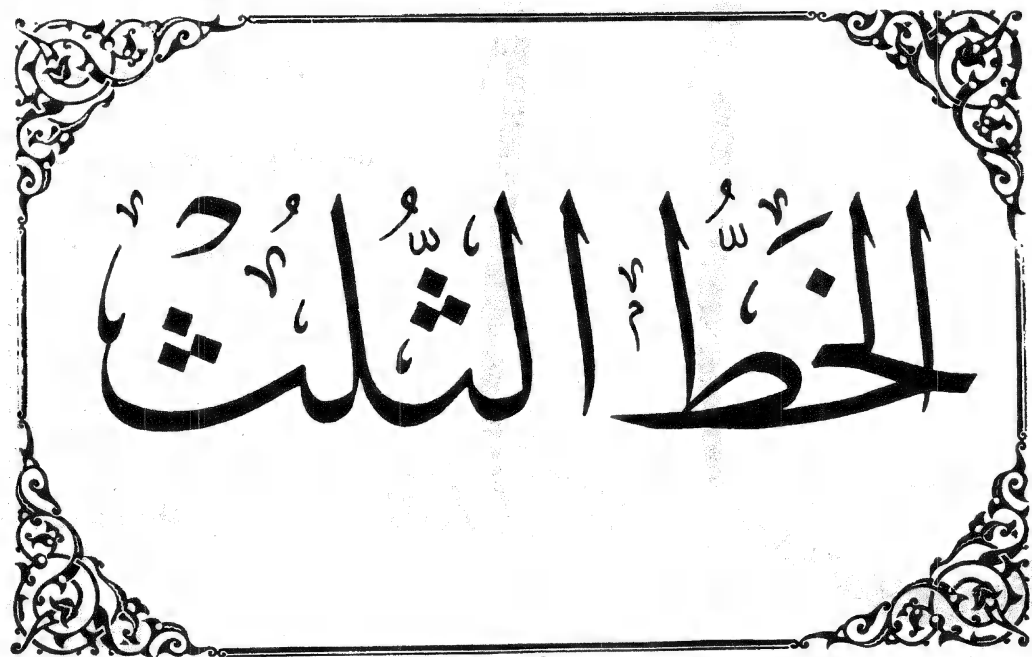 الخَطُّ الثُّلُث